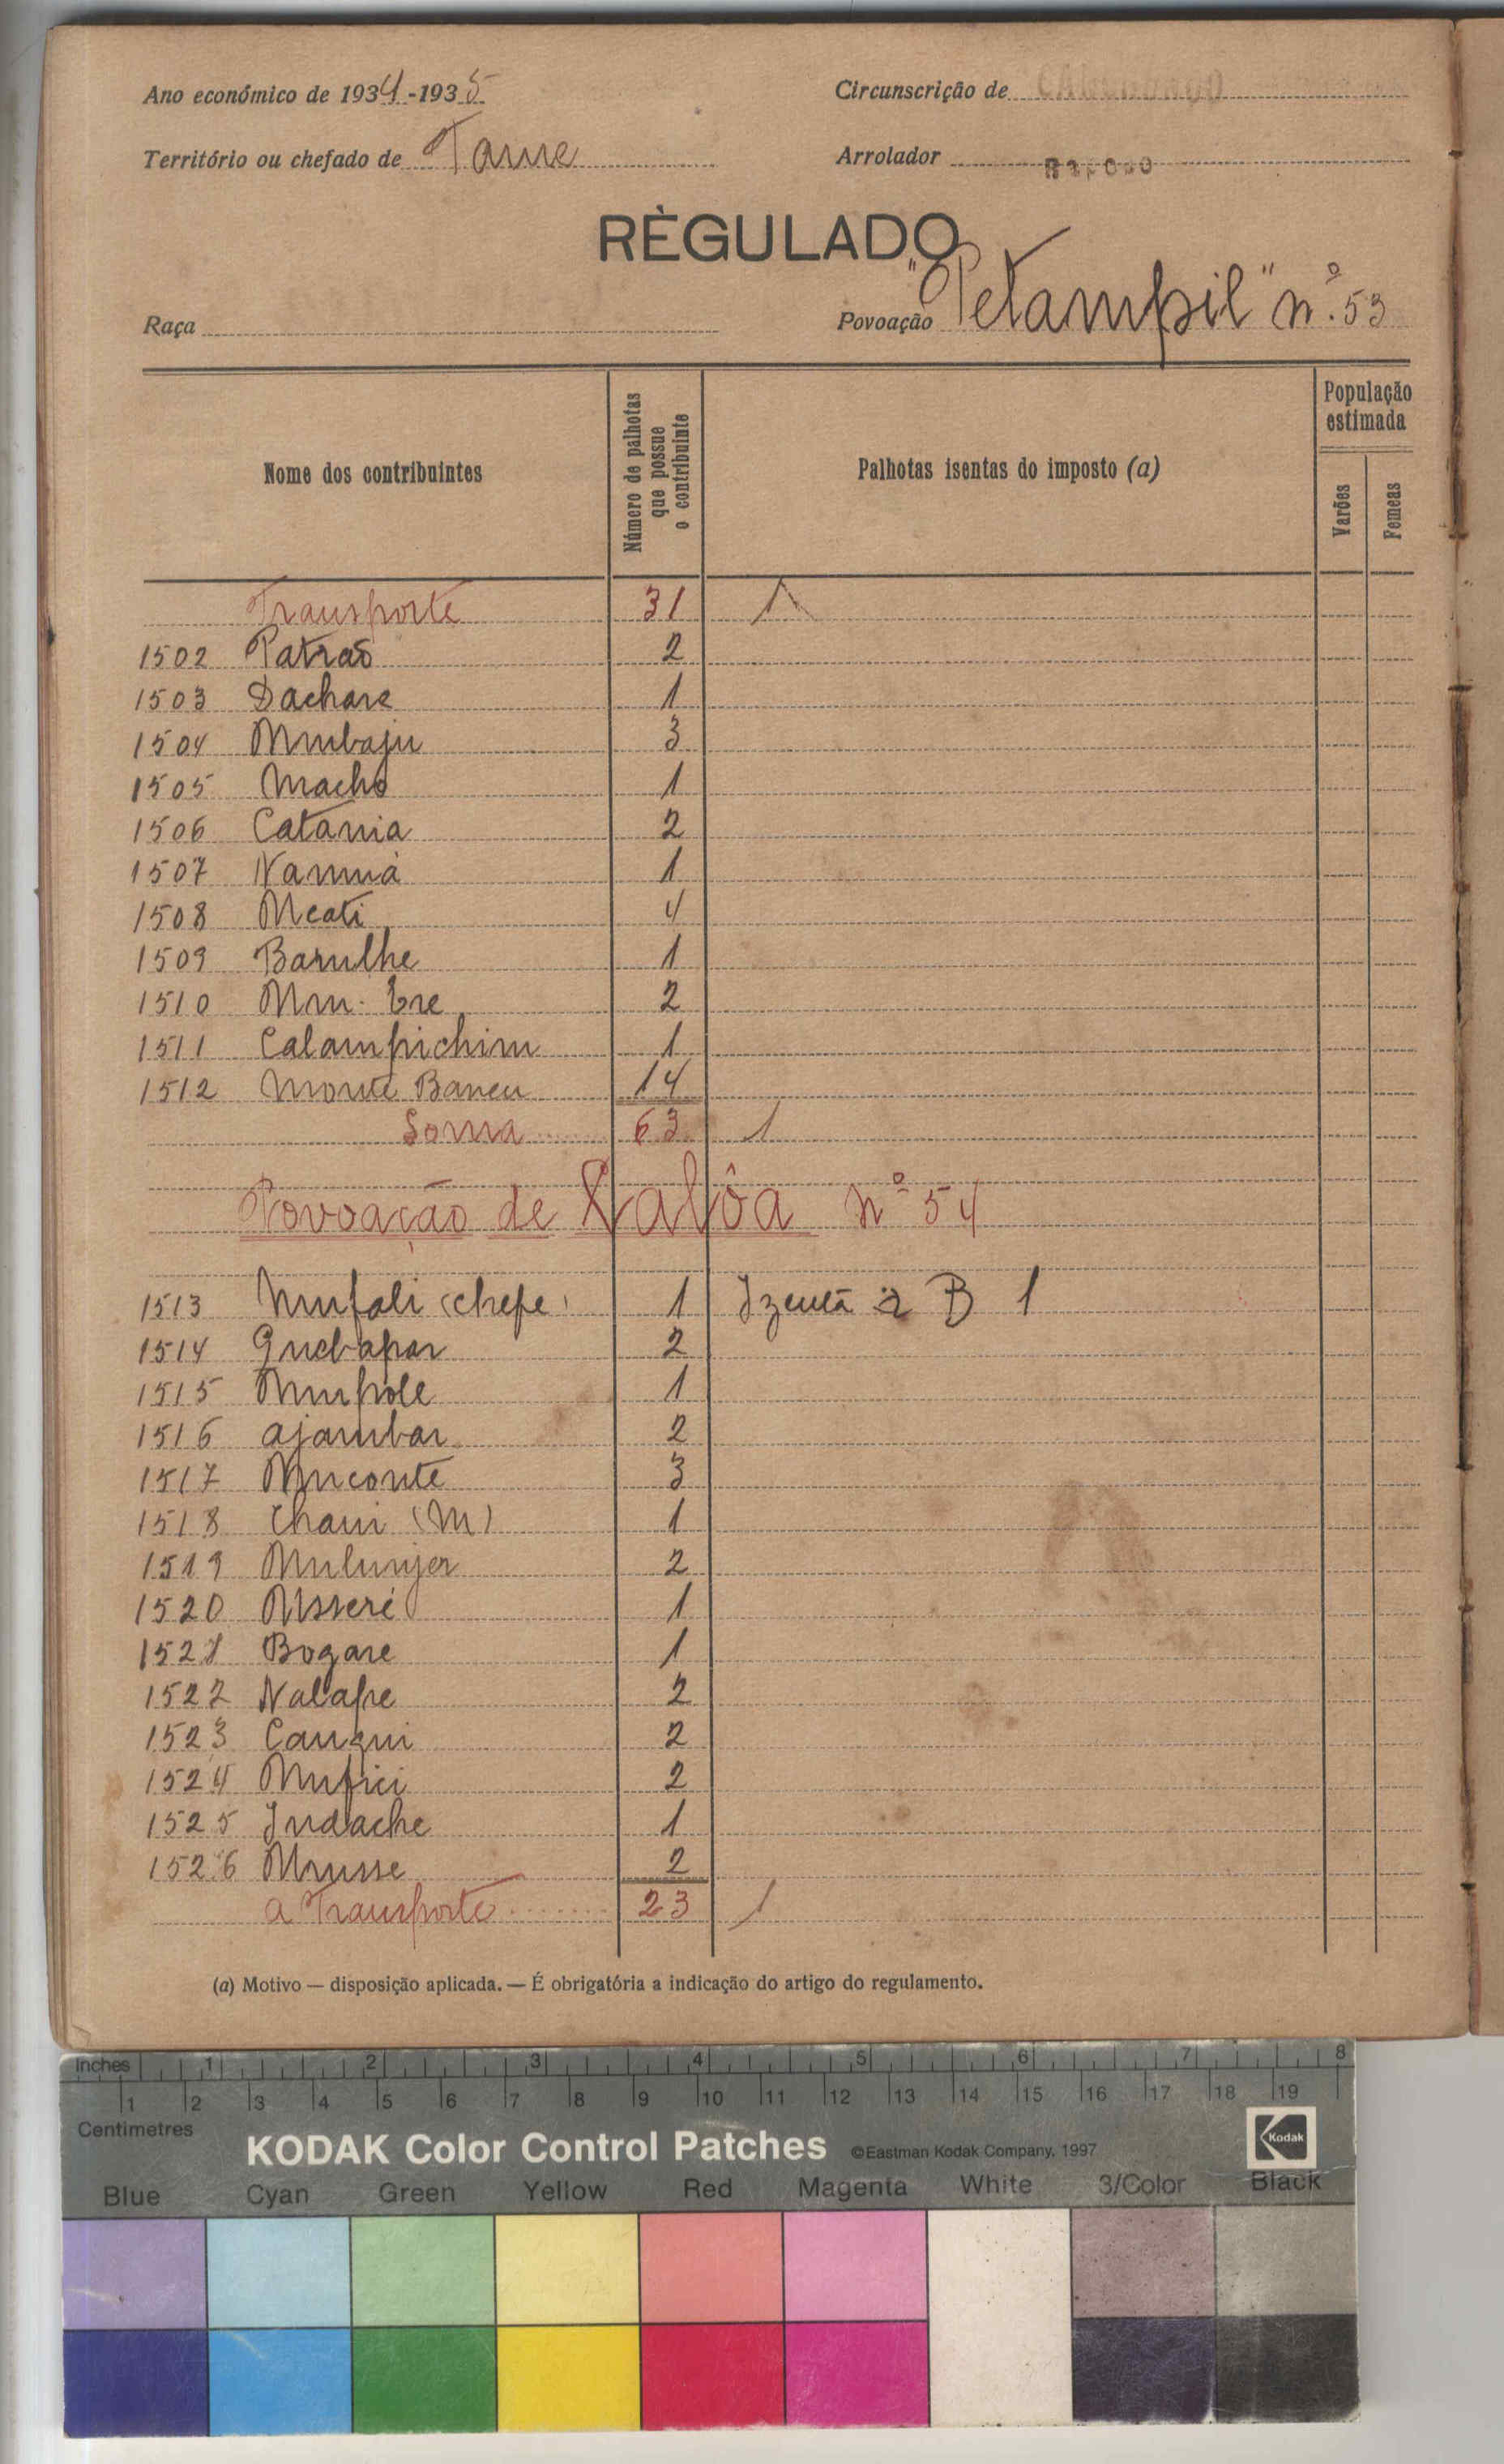 Ano económico de 1934-1935
Circunscrição de
Território ou chefado de Tame
Arrolador
RÈGULADO
Raça
Povoação "Petampil" nº. 53
Nome dos contribuintes
Número de palhotas que possue o contribuinte
Palhotas isentas do imposto (a)
População estimada
Varões
Femeas
Transporte 31 1
1502 Patrão 2
1503 Dachare 1
1504 Mubaju 3
1505 Macho 1
1506 Catania 2
1507 Namuá 1
1508 Mcati 4
1509 Barulhe 1
1510 2
1511 Calampichim 1
1512 Monte Baneu 14
Soma 63 1
Povoação de Xalôa nº 54
1513 Mufali (chefe) 1 Izentã a B 1
1514 Quebapar 2
1515 Mupole 1
1516 Ajambar 2
1517 Muconte 3
1518 Chaui (M) 1
1519 Mulunjer 2
1520 Musseré 1
1521 Bogare 1
1522 Nalapre 2
1523 Caugui 2
1524 Mufici 2
1525 Indache 1
1526 Musse 2
A Transporte 23 1
(a) Motivo — disposição aplicada. — É obrigatória a indicação do artigo do regulamento.
Inches 1 2 3 4 5 6 7 8
1 2 3 4 5 6 7 8 9 10 11 12 13 14 15 16 17 18 19
Centimetres
KODAK Color Control Patches ©Eastman Kodak Company, 1997 Kodak
Blue Cyan Green Yellow Red Magenta White 3/Color Black